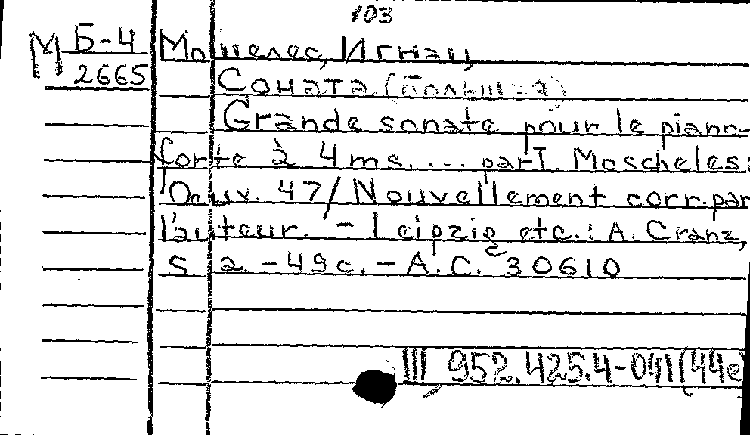 103
М Б-4 Мошелес, Игнац
2665 Соната (больш-я)
Grande sonate pour le piano-
forte à 4 ms. ... par I. Moscheles.
Oeuv. 47/ Nouvellement corr. par
l'auteur. - Leipzig etc.: A. Cranz,
S. a. - 49 c. - A. C. 30610
III 952.425.4-041(44e)